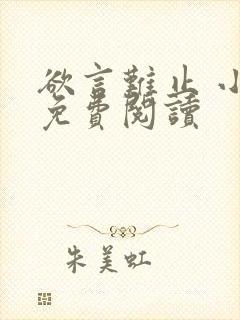 欲言難止 小
免費閱讀
朱美虹